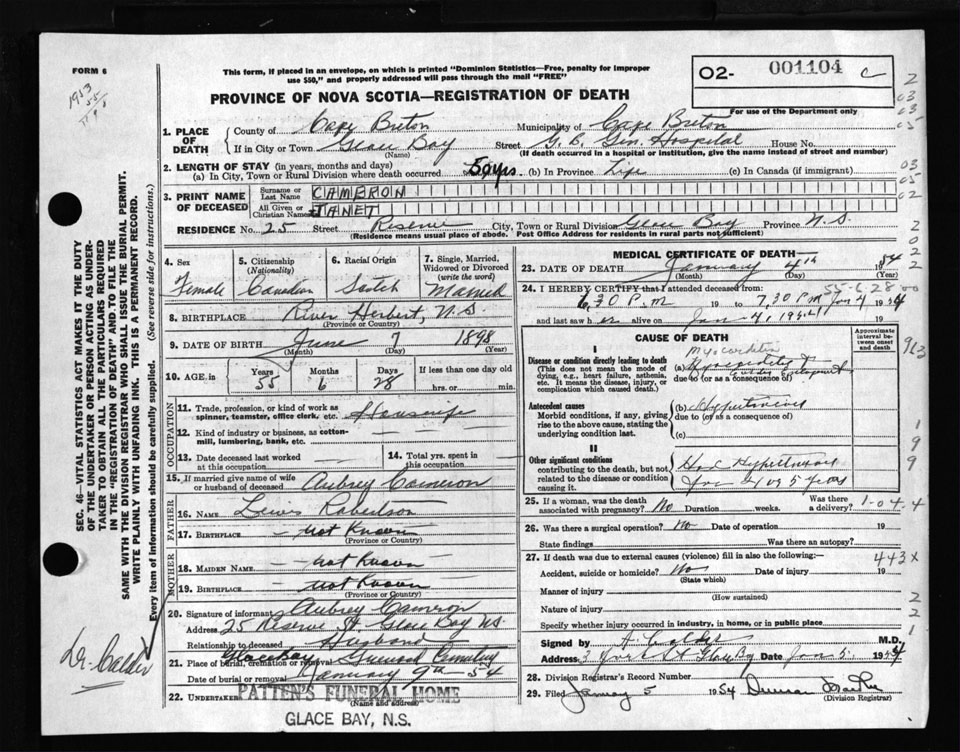 FORM 6
This form, if placed in an envelope, on which is printed "Dominion Statistics—Free, penalty for improper
use $50," and properly addressed will pass through the mail "FREE"
PROVINCE OF NOVA SCOTIA—REGISTRATION OF DEATH
O2- 001104 c
For use of the Department only
1953
1. PLACE OF DEATH County of Cape Breton Municipality of Cape Breton
If in City or Town Glace Bay Street G. B. Gen. Hospital House No.
(Name) (If death occurred in a hospital or institution, give the name instead of street and number)
2. LENGTH OF STAY (in years, months and days)
(a) In City, Town or Rural Division where death occurred 50 yrs (b) In Province Life (c) In Canada (if immigrant)
3. PRINT NAME OF DECEASED Surname or Last Name CAMERON
All Given or Christian Names JANET
RESIDENCE No. 25 Street Reserve City, Town or Rural Division Glace Bay Province N.S.
(Residence means usual place of abode. Post Office Address for residents in rural parts not sufficient)
4. Sex Female
5. Citizenship (Nationality) Canadian
6. Racial Origin Scotch
7. Single, Married, Widowed or Divorced (write the word) Married
8. BIRTHPLACE River Herbert, N.S.
(Province or Country)
9. DATE OF BIRTH June 7 1898
(Month) (Day) (Year)
10. AGE in Years 55 Months 6 Days 28 If less than one day
hrs. or min.
OCCUPATION
11. Trade, profession, or kind of work as
spinner, teamster, office clerk, etc. Housewife
12. Kind of industry or business, as cotton-
mill, lumbering, bank, etc.
13. Date deceased last worked
at this occupation
14. Total yrs. spent in
this occupation
15. If married give name of wife
or husband of deceased Aubrey Cameron
FATHER
16. NAME Lewis Robertson
17. BIRTHPLACE Not Known
(Province or Country)
MOTHER
18. MAIDEN NAME Not Known
19. BIRTHPLACE Not Known
(Province or Country)
20. Signature of informant Aubrey Cameron
Address 25 Reserve St Glace Bay N.S.
Relationship to deceased Husband
21. Place of burial, cremation or removal Glace Bay Greenwood Cemetery
Date of burial or removal January 9th 54
22. UNDERTAKER PATTEN'S FUNERAL HOME
(Name and address)
GLACE BAY, N.S.
MEDICAL CERTIFICATE OF DEATH
23. DATE OF DEATH January 4th 1954
(Month) (Day) (Year)
24. I HEREBY CERTIFY that I attended deceased from:
6.30 P.M 19 to 7.30 PM Jan 4 1954
and last saw her alive on Jan 4, 1954
55-6-28
CAUSE OF DEATH
Approximate interval between onset and death
I
Disease or condition directly leading to death
(This does not mean the mode of dying, e.g., heart failure, asthenia, etc. It means the disease, injury, or complication which caused death.)
(a)
due to (or as a consequence of)
Antecedent causes
Morbid conditions, if any, giving rise to the above cause, stating the underlying condition last.
(b) Hypertension
due to (or as a consequence of)
(c)
II
Other significant conditions
contributing to the death, but not related to the disease or condition causing it.
Had Hypertension
for 4 or 5 years
25. If a woman, was the death
associated to pregnancy? No Duration weeks. Was there
a delivery?
1-04-4
26. Was there a surgical operation? No Date of operation 19
State findings Was there an autopsy?
27. If death was due to external causes (violence) fill in also the following:—
443x
Accident, suicide or homicide? No Date of injury 19
(State which)
Manner of injury
(How sustained)
Nature of injury
Specify whether injury occurred in industry, in home, or in public place
Signed by A. Calder M.D.
Address York St Glace Bay Date Jan 5. 1954
28. Division Registrar's Record Number
29. Filed January 5 1954 Duncan
(Division Registrar)
SEC. 46—VITAL STATISTICS ACT MAKES IT THE DUTY
OF THE UNDERTAKER OR PERSON ACTING AS UNDER-
TAKER TO OBTAIN ALL THE PARTICULARS REQUIRED
IN THE "REGISTRATION OF DEATH" AND TO FILE THE
SAME WITH THE DIVISION REGISTRAR WHO SHALL ISSUE THE BURIAL PERMIT.
WRITE PLAINLY WITH UNFADING INK. THIS IS A PERMANENT RECORD.
Every item of information should be carefully supplied. (See reverse side for instructions.)
Dr. Calder